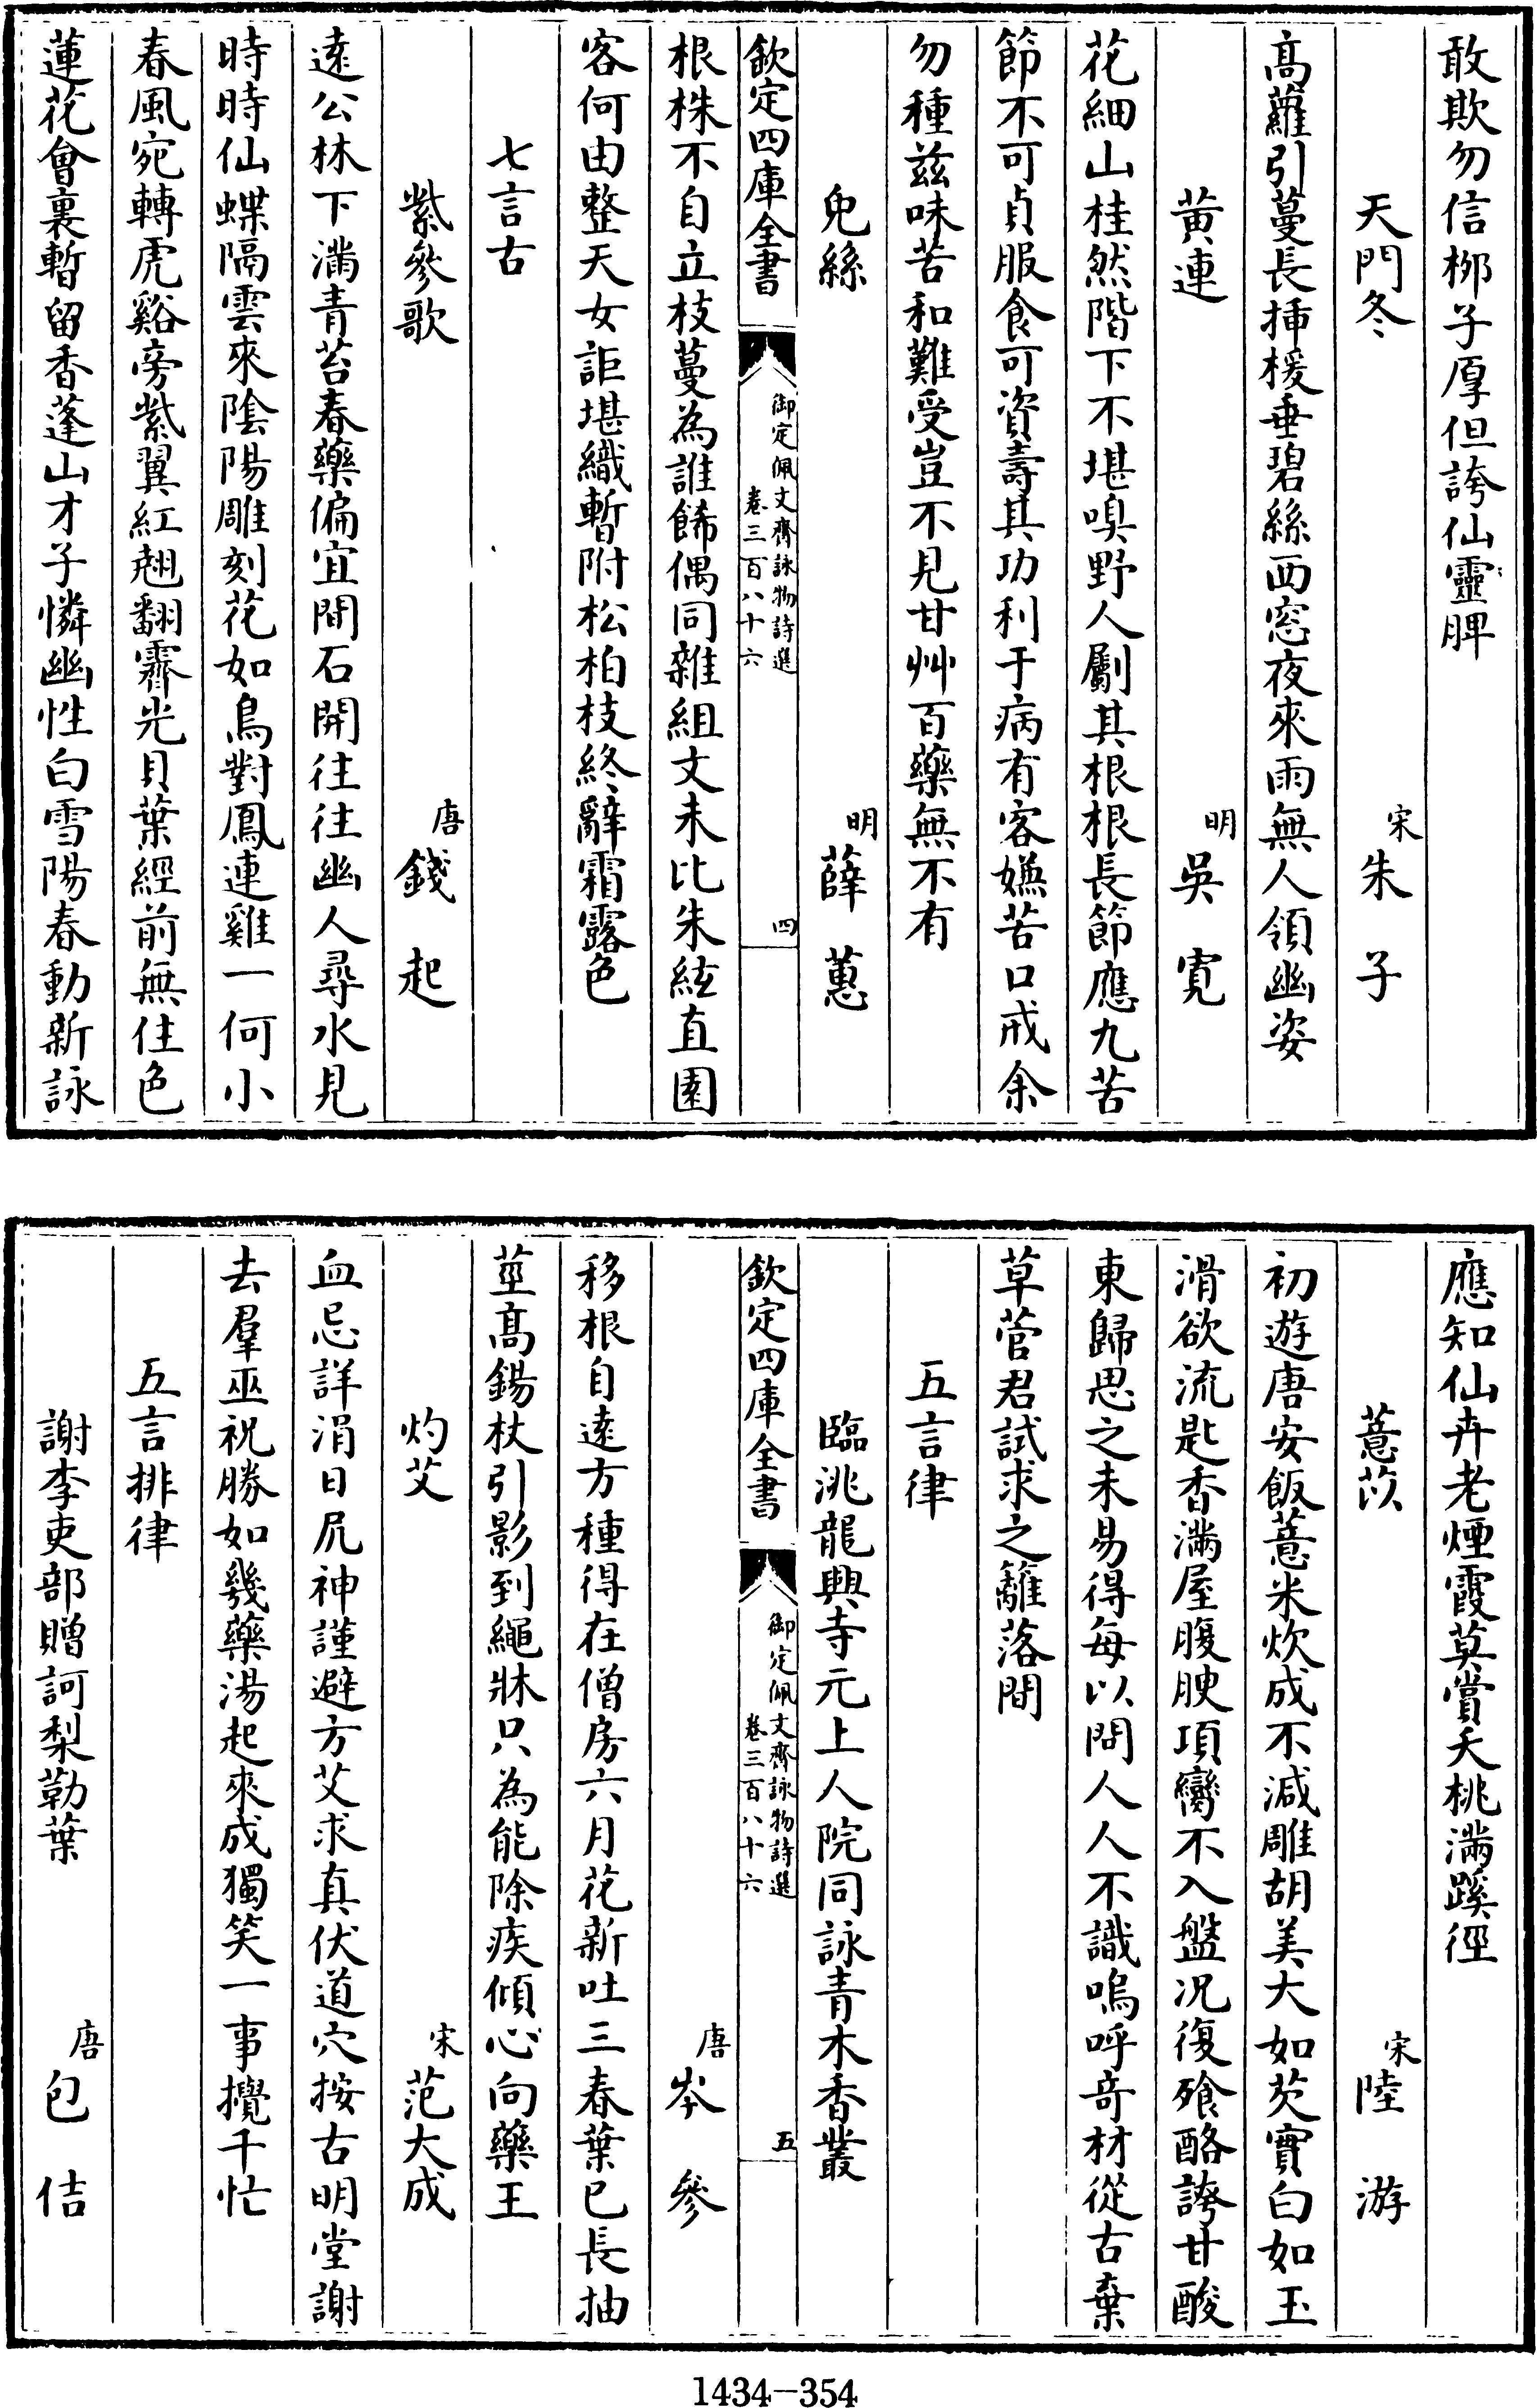 敢欺勿信栁子厚但誇仙靈脾
天門冬
宋朱子
髙蘿引蔓長揷楥垂碧絲西窓夜來雨無人領幽姿
黄連
明吳寛
花細山桂然階下不堪嗅野人劚其根根長節應九苦
節不可貞服食可資壽其功利于病有客嫌苦口戒余
勿種兹味苦和難受豈不見甘艸百藥無不有
兔絲
明薛蕙
欽定四庫全書
御定佩文齋詠物詩選
卷三百八十六
四
根株不自立枝蔓為誰餙偶同雜組文未比朱絃直園
客何由整天女詎堪織暫附松柏枝終辭霜露色
七言古
紫參歌
唐錢起
逺公林下滿青苔春藥偏宜間石開往往幽人尋水見
時時仙蝶隔雲來陰陽雕刻花如鳥對鳳連雞一何小
春風宛轉虎谿旁紫翼紅翹翻霽光貝葉經前無住色
蓮花會裏暫留香蓬山才子憐幽性白雪陽春動新詠
應知仙卉老煙霞莫賞夭桃滿蹊徑
薏苡
宋陸游
初遊唐安飯薏米炊成不減雕胡美大如芡實白如玉
滑欲流匙香滿屋腹腴項臠不入盤况復飱酪誇甘酸
東歸思之未易得每以問人人不識嗚呼竒材從古棄
草菅君試求之籬落間
五言律
臨洮龍興寺元上人院同詠青木香叢
欽定四庫全書
御定佩文齋詠物詩選
卷三百八十六
五
唐岑參
移根自逺方種得在僧房六月花新吐三春葉已長抽
莖髙錫杖引影到繩牀只為能除疾傾心向藥王
灼艾
宋范大成
血忌詳涓日尻神謹避方艾求真伏道穴按古明堂謝
去羣巫祝勝如幾藥湯起來成獨笑一事攪千忙
五言排律
謝李吏部贈訶梨勒葉
唐包佶
1434-354